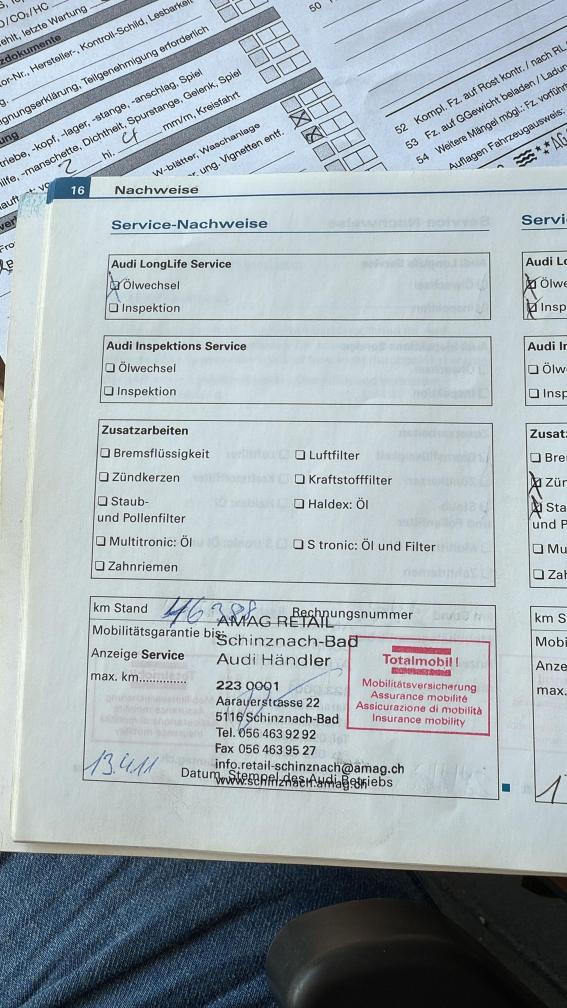 D/CO/HC
ehl, letzte Wartung
zdokumente
or-Nr., Hersteller-, Kontroll-Schild, Lesbarkeit
gnungserklärung, Teilgenehmigung erforderlich
triebe, -kopf, -lager, -stange, -anschlag, Spiel
hilfe, -manschette, Dichtheit, Spurstange, Gelenk, Spiel
2 hl. 4 mm/m, Kreisfahrt
W-blätter, Waschanlage
ung, Vignetten entf.
50
52 Kompl. Fz. auf Rost kontr. / nach RL
53 Fz. auf GGewicht beladen / Ladun
54 Weitere Mängel mögl.: Fz. vorführ
Auflagen Fahrzeugausweis:
16 Nachweise
Service-Nachweise
Audi LongLife Service
Ölwechsel
Inspektion
Audi Inspektions Service
Ölwechsel
Inspektion
Zusatzarbeiten
Bremsflüssigkeit
Luftfilter
Zündkerzen
Kraftstofffilter
Staub-
und Pollenfilter
Haldex: Öl
Multitronic: Öl
S tronic: Öl und Filter
Zahnriemen
km Stand 46388 Rechnungsnummer
Mobilitätsgarantie bis:
Anzeige Service
max. km
AMAG RETAIL
Schinznach-Bad
Audi Händler
223 0001
Aarauerstrasse 22
5116 Schinznach-Bad
Tel. 056 463 92 92
Fax 056 463 95 27
info.retail-schinznach@amag.ch
www.schinznach.amag.ch
Totalmobil!
Mobilitätsversicherung
Assurance mobilité
Assicurazione di mobilità
Insurance mobility
13.4.11
Datum, Stempel des Audi Betriebs
Servi
Audi Lo
Ölwe
Insp
Audi In
Ölw
Insp
Zusat
Bre
Zün
Sta
und P
Mu
Zah
km S
Mobi
Anze
max.